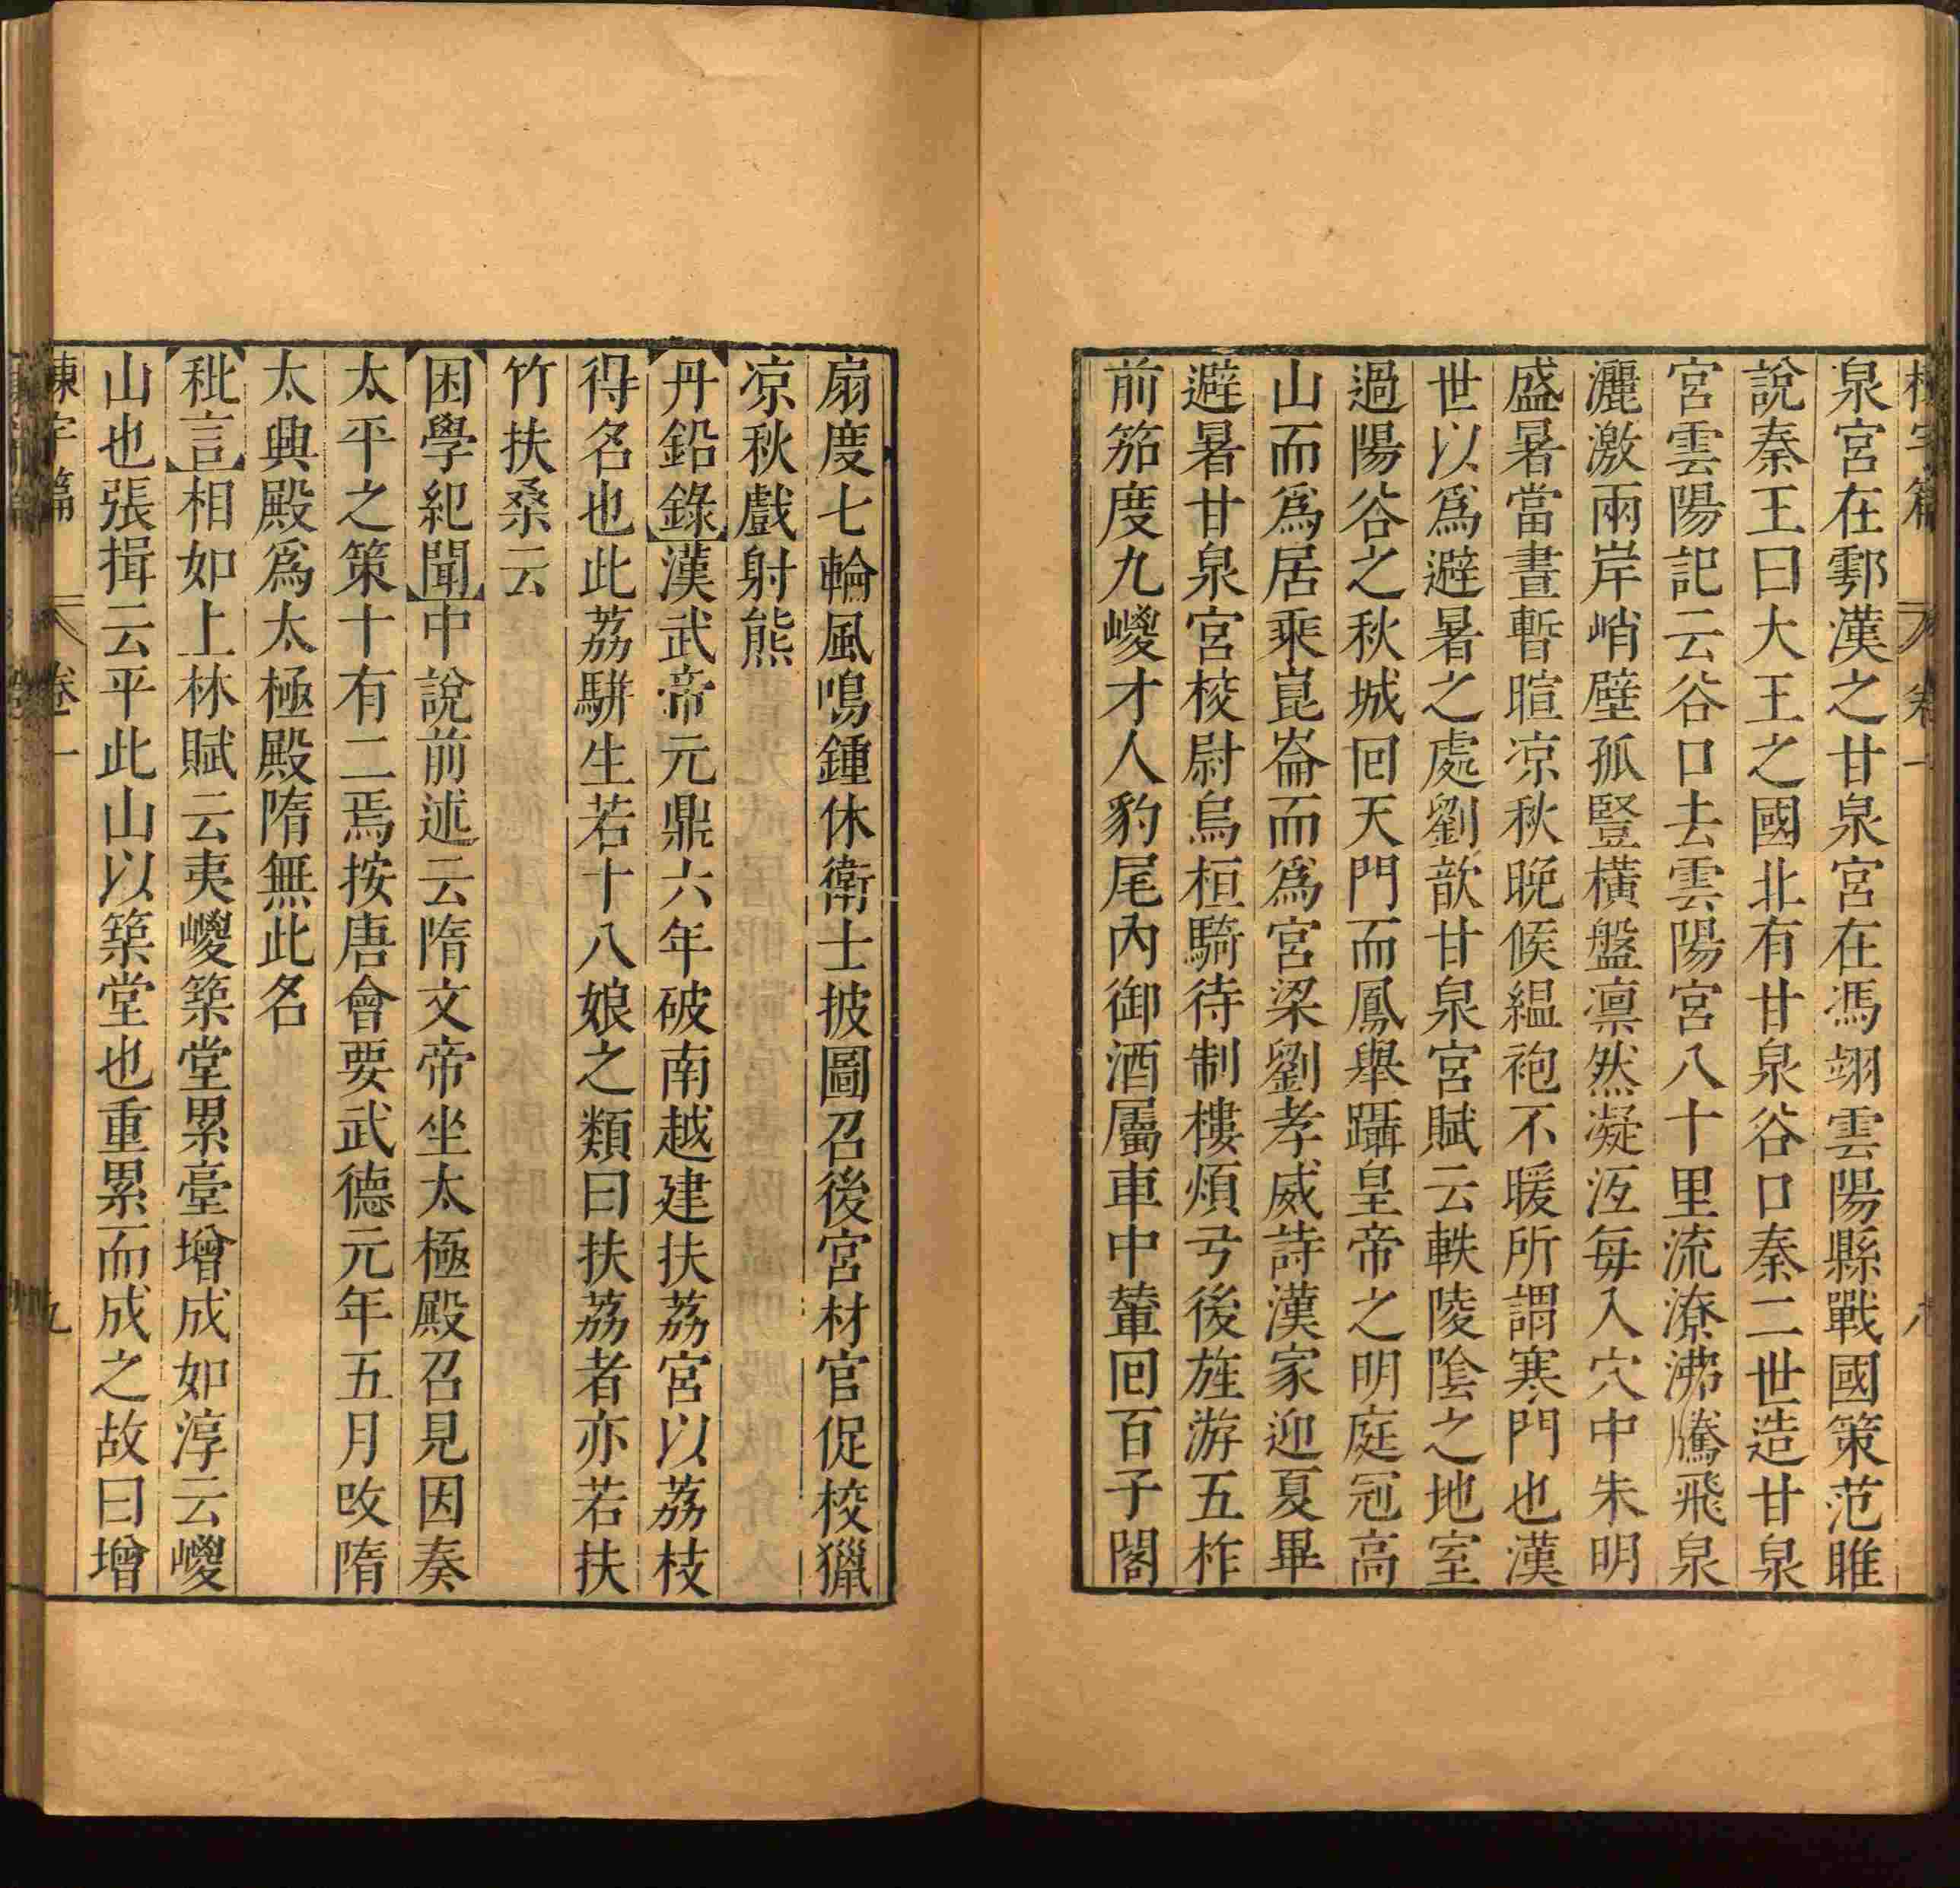 泉宮在鄠漢之甘泉宮在馮翊雲陽縣戰國策范雎
說秦王曰大王之國北有甘泉谷口秦二世造甘泉
宮雲陽記云谷口去雲陽宮八十里流潦沸騰飛泉
灑激兩岸峭壁孤豎橫盤凛然凝沍每入穴中朱明
盛暑當晝暫暄凉秋晚候縕袍不暖所謂寒門也漢
世以爲避暑之處劉歆甘泉宮賦云軼陵隂之地室
過陽谷之秋城回天門而鳳舉躡皇帝之明庭冠高
山而爲居乘崑崙而爲宮梁劉孝威詩漢家迎夏畢
避暑甘泉宮校尉烏桓騎待制樓煩弓後旌游五柞
前笳度九嵕才人豹尾內御酒屬車中輦回百子閣
扇度七輪風鳴鍾休衛士披圖召後宮材官促校獵
凉秋戲射熊
丹鉛錄漢武帝元鼎六年破南越建扶荔宮以荔枝
得名也此荔駢生若十八娘之類曰扶荔者亦若扶
竹扶桑云
困學紀聞中說前述云隋文帝坐太極殿召見因奏
太平之策十有二焉按唐會要武德元年五月改隋
太興殿爲太極殿隋無此名
秕言相如上林賦云夷嵕築堂累臺增成如淳云嵕
山也張揖云平此山以築堂也重累而成之故曰增
卷一
九